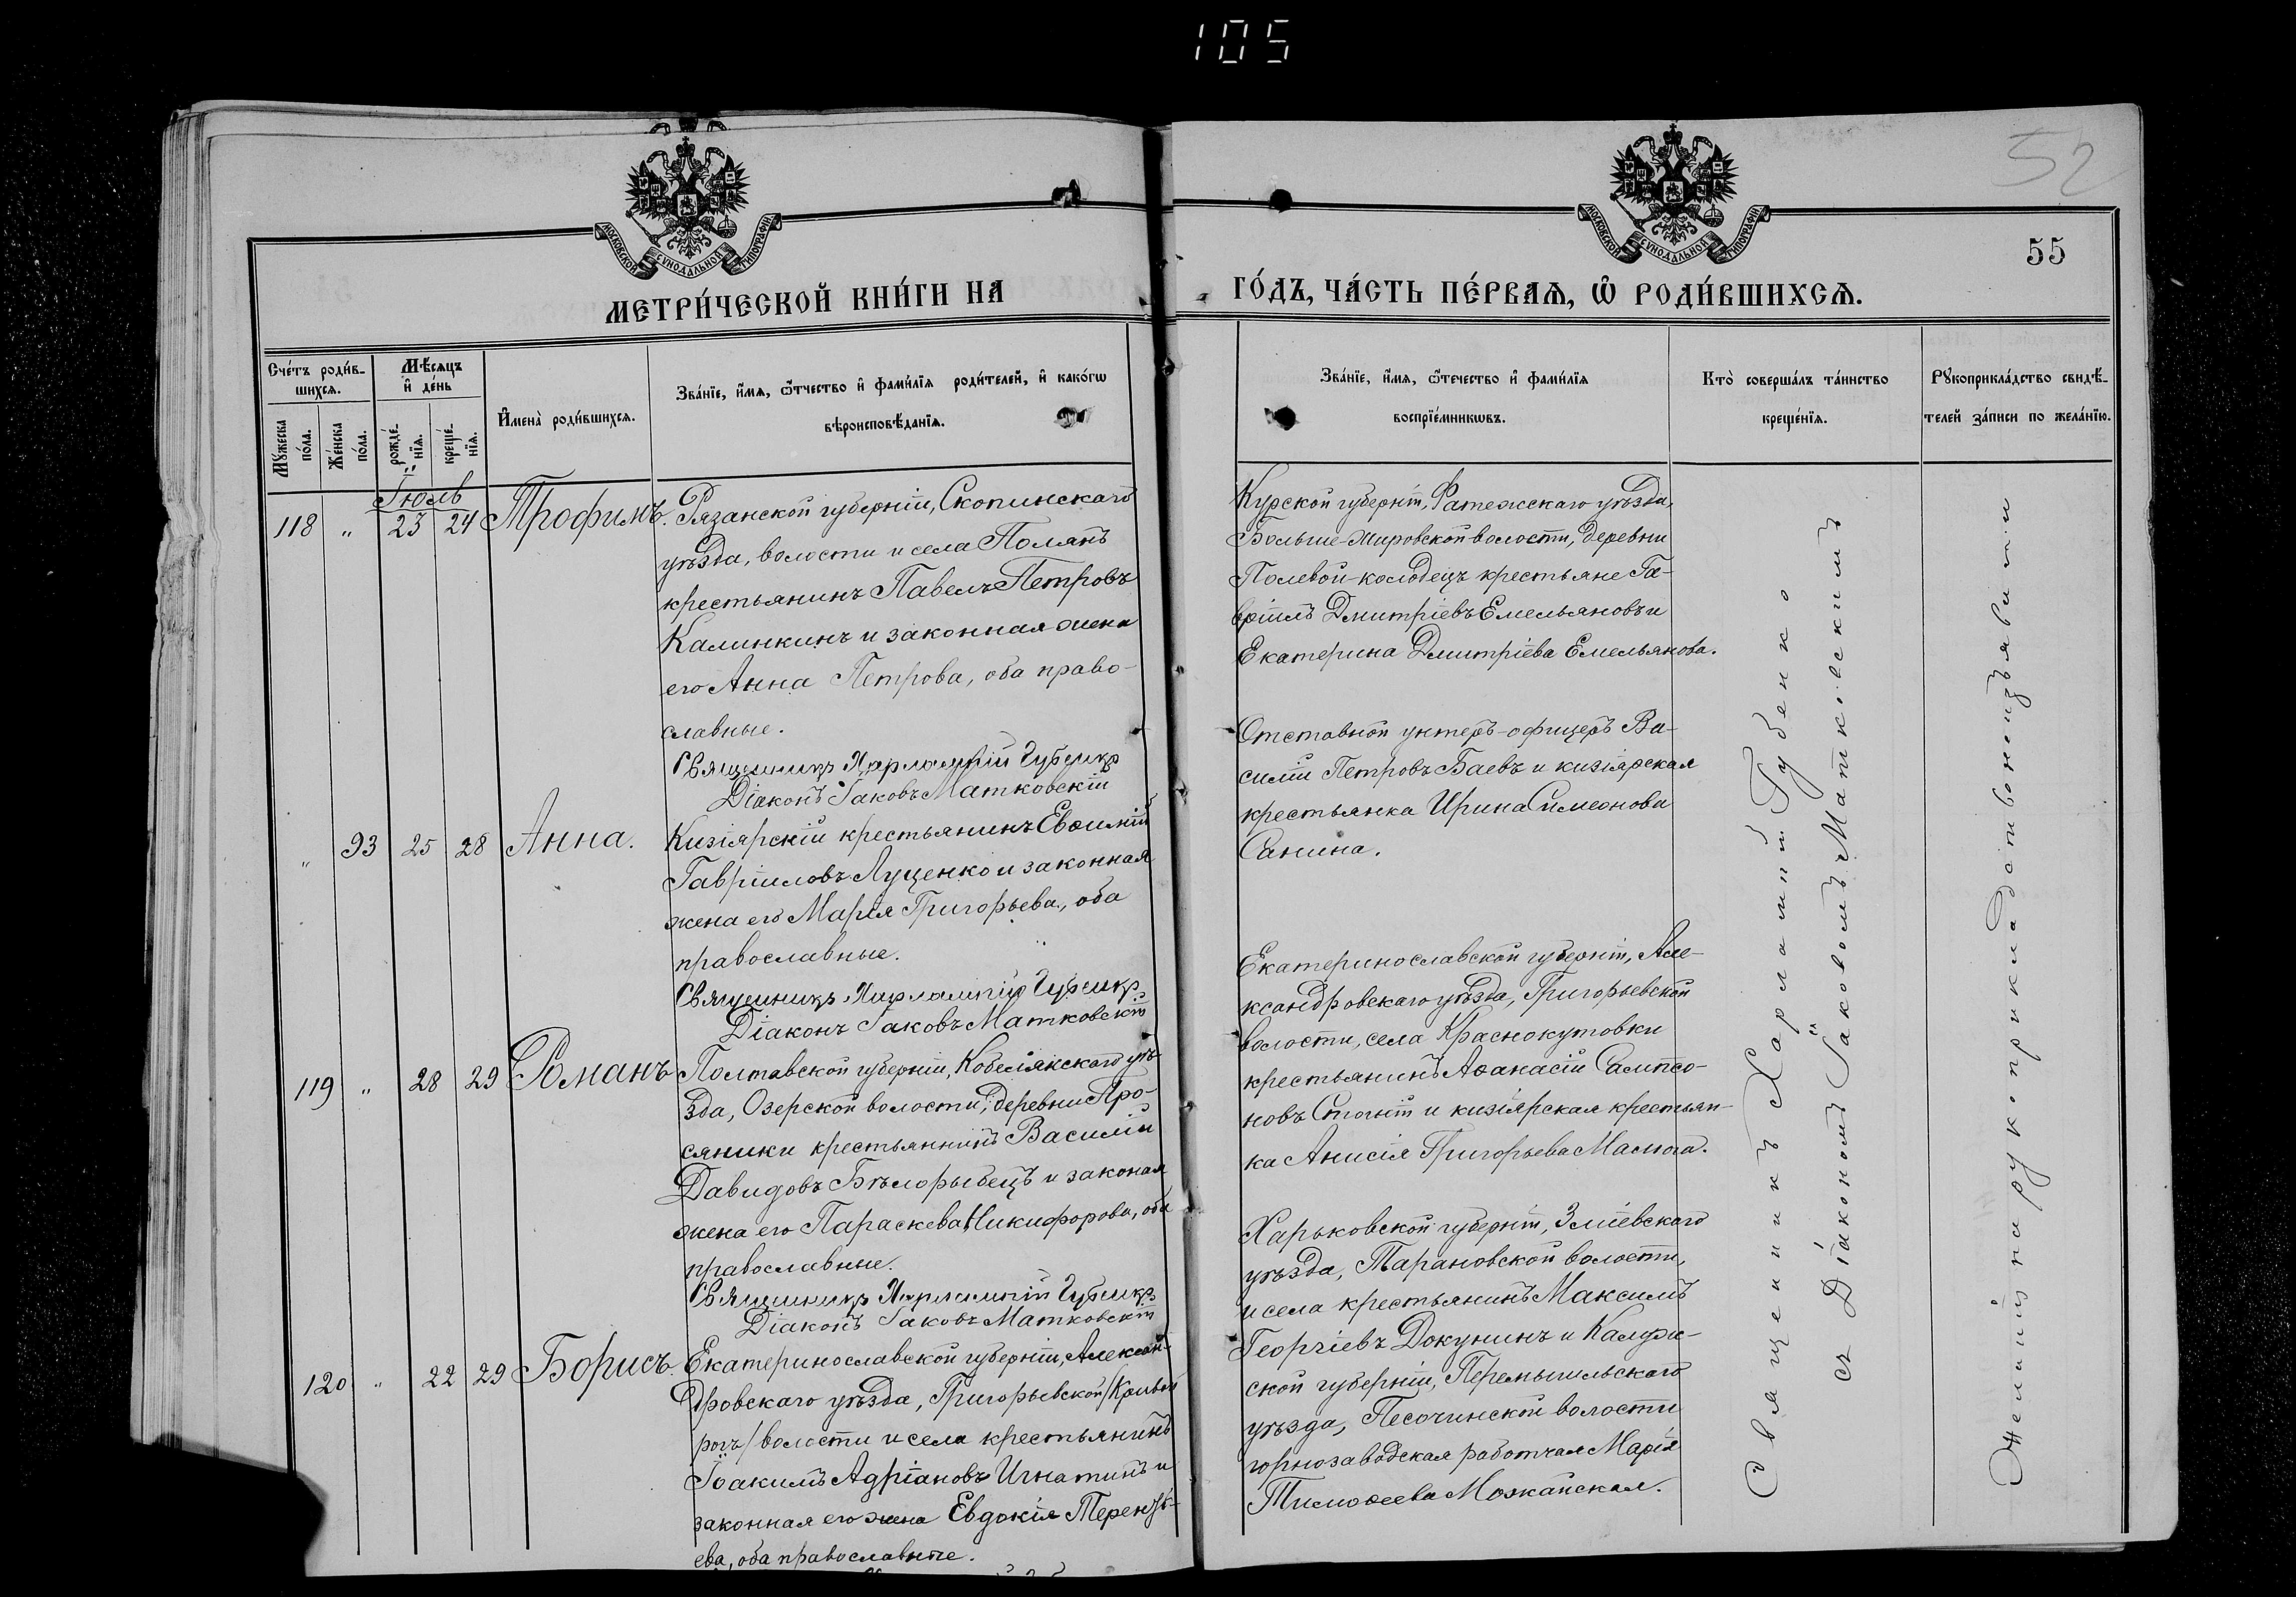 105
52
55
МОСКОВСКОЙ СУНОДАЛЬНОЙ ТИПОГРАФІИ
МОСКОВСКОЙ СУНОДАЛЬНОЙ ТИПОГРАФІИ
МЕТРИ́ЧЕСКОЙ КНИ́ГИ НА
ГО́ДЪ, ЧА́СТЬ ПЕ́РВАѦ, Ѽ РОДИ́ВШИХСѦ.
Сче́тъ роди́в-
шихсѧ.
Мѣ́сяцъ
и҆ де́нь
Мꙋ́жеска
по́ла.
Же́нска
по́ла.
рожде́-
нїѧ.
креще́-
нїѧ.
И҆мена̀ роди́вшихсѧ.
Зва́нїе, и҆́мѧ, ѻ҆́тчество и҆ фами́лїѧ роди́телей, и҆ како́гѡ
вѣроисповѣ́данїѧ.
Зва́нїе, и҆́мѧ, ѻ҆те́чество и҆ фами́лїѧ
воспрїе́мникѡвъ.
Кто̀ соверша́лъ та́инство
креще́нїѧ.
Рꙋкоприкла́дство свидѣ́-
телей за́писи по жела́нїю.
Іюль
118 „ 23 24 Трофимъ.
Рязанской губерніи, Скопинскаго
уѣзда, волости и села Полянъ
крестьянинъ Павелъ Петровъ
Калинкинъ и законная жена
его Анна Петрова, оба право-
славные.
Священникъ Харлампій Губенко
Діаконъ Іаковъ Матковскій
Курской губерніи, Фатежскаго уѣзда,
Больше-Жировской волости, деревни
Полевой-колодецъ крестьяне Га-
вріилъ Дмитріевъ Емельяновъ и
Екатерина Дмитріева Емельянова.
„ 93 25 28 Анна.
Кизіярскій крестьянинъ Евѳимій
Гавріиловъ Луценко и законная
жена его Марія Григорьева, оба
православные.
Священникъ Харлампій Губенко
Діаконъ Іаковъ Матковскій
Отставной унтеръ-офицеръ Ва-
силій Петровъ Баевъ и кизіярская
крестьянка Ирина Симеонова
Санина.
119 „ 28 29 Романъ
Полтавской губерніи, Кобелякскаго уѣ-
зда, Озерской волости, деревни Про-
сяники крестьянинъ Василій
Давидовъ Бѣлорыбецъ и законая
жена его Параскева Никифорова, оба
православные.
Священникъ Харлампій Губенко
Діаконъ Іаковъ Матковскій
Екатеринославской губерніи, Але-
ксандровскаго уѣзда, Григорьевской
волости, села Краснокутовки
крестьянинъ Аѳанасій Сампсо-
новъ и кизіярская крестьян-
ка Анисія Григорьева Малюга.
120 „ 22 29 Борисъ.
Екатеринославской губерніи, Алексан-
дровскаго уѣзда, Григорьевской /Кривой
рогъ/ волости и села крестьянинъ
Іоакимъ Адріановъ Игнатинъ и
законная его жена Евдокія Терентьѣ-
ева, оба православные.
Харьковской губерніи, Зміевского
уѣзда, Тарановской волости,
и села крестьянинъ Максимъ
Георгіевъ Докунинъ и Калуж-
ской губерніи, Перемышльскаго
уѣзда, Песочинской волости
горнозаводская работчая Марія
Тимоѳеева Можайская.
Священникъ Харлампій Губенко
съ Діакономъ Іаковомъ Матковскимъ
Желаній на рукоприкладство не изъявили